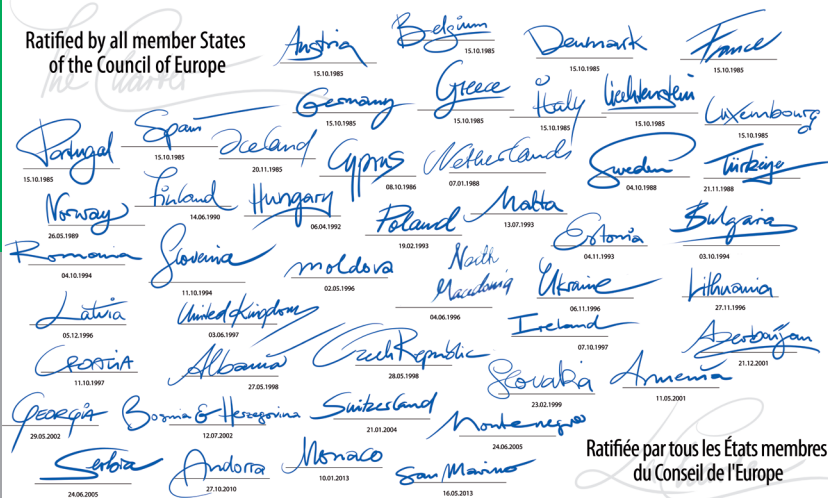 Ratified by all member States
of the Council of Europe
The Charter
Austria
15.10.1985
Belgium
15.10.1985
Denmark
15.10.1985
France
15.10.1985
Germany
15.10.1985
Greece
15.10.1985
Italy
15.10.1985
Liechtenstein
15.10.1985
Luxembourg
15.10.1985
Portugal
15.10.1985
Spain
15.10.1985
Iceland
20.11.1985
Cyprus
08.10.1986
Netherlands
07.01.1988
Sweden
04.10.1988
Türkiye
21.11.1988
Norway
26.05.1989
Finland
14.06.1990
Hungary
06.04.1992
Poland
19.02.1993
Malta
13.07.1993
Estonia
04.11.1993
Bulgaria
03.10.1994
Romania
04.10.1994
Slovenia
11.10.1994
moldova
02.05.1996
North
Macedonia
04.06.1996
Ukraine
06.11.1996
Lithuania
27.11.1996
Latvia
05.12.1996
United Kingdom
03.06.1997
Ireland
07.10.1997
Azerbaijan
21.12.2001
CROATIA
11.10.1997
Albania
27.05.1998
Czech Republic
28.05.1998
Slovakia
23.02.1999
Armenia
11.05.2001
GEORGIA
29.05.2002
Bosnia & Herzegovina
12.07.2002
Switzerland
21.01.2004
Montenegro
24.06.2005
Serbia
24.06.2005
Andorra
27.10.2010
Monaco
10.01.2013
San Marino
16.05.2013
Ratifiée par tous les États membres
du Conseil de l'Europe